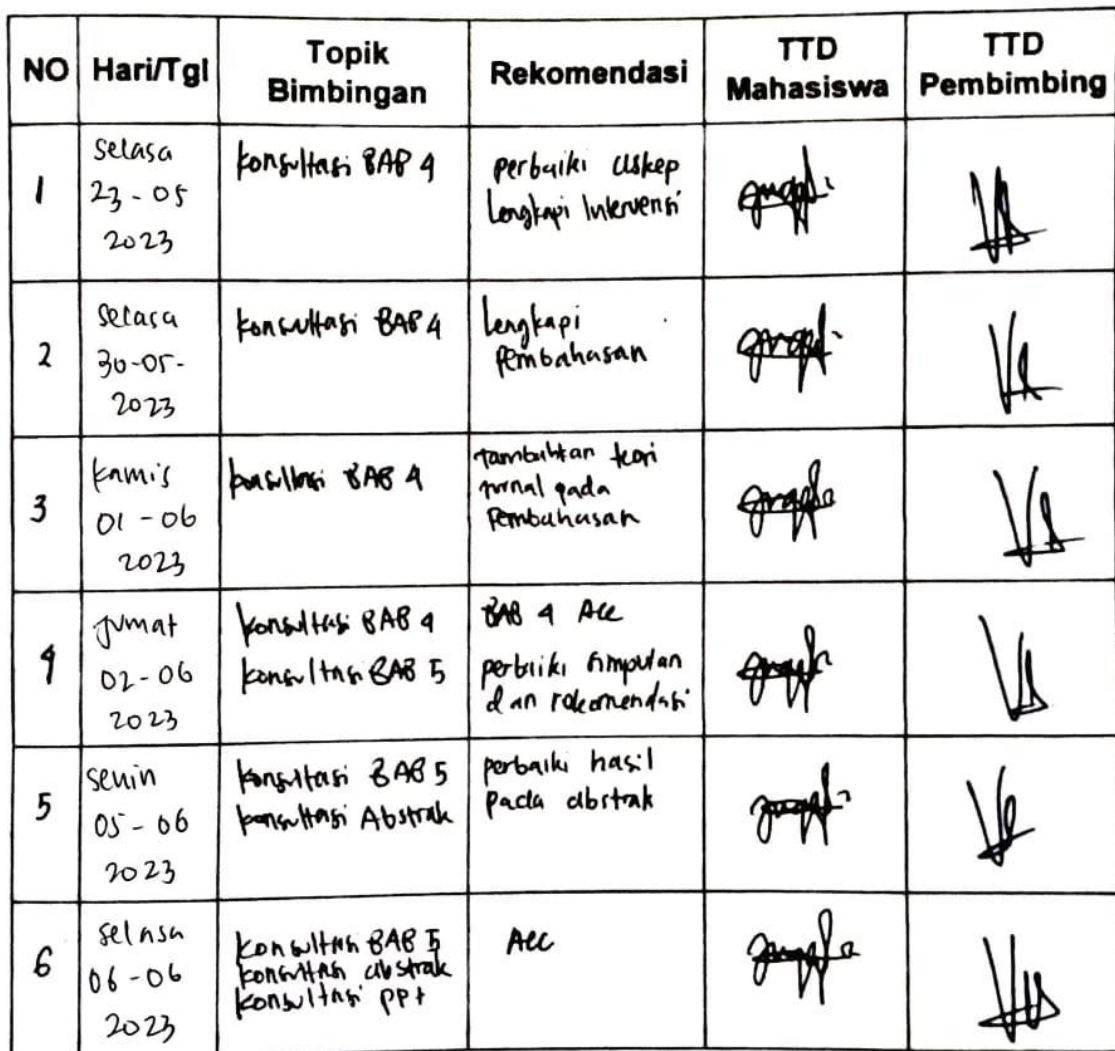 NO Hari/Tgl Topik Bimbingan Rekomendasi TTD Mahasiswa TTD Pembimbing
1
selasa
23-05
2023
konsultasi BAB 4
perbaiki askep
Lengkapi Intervensi
2
selasa
30-05-
2023
konsultasi BAB 4
Lengkapi
Pembahasan
3
kamis
01-06
2023
konsultasi BAB 4
tambahkan teori
jurnal pada
Pembahasan
4
jumat
02-06
2023
konsultasi BAB 4
konsultasi BAB 5
BAB 4 Acc
perbaiki simpulan
dan rekomendasi
5
senin
05-06
2023
konsultasi BAB 5
konsultasi Abstrak
perbaiki hasil
pada abstrak
6
selasa
06-06
2023
konsultasi BAB 5
konsultasi abstrak
konsultasi ppt
Acc